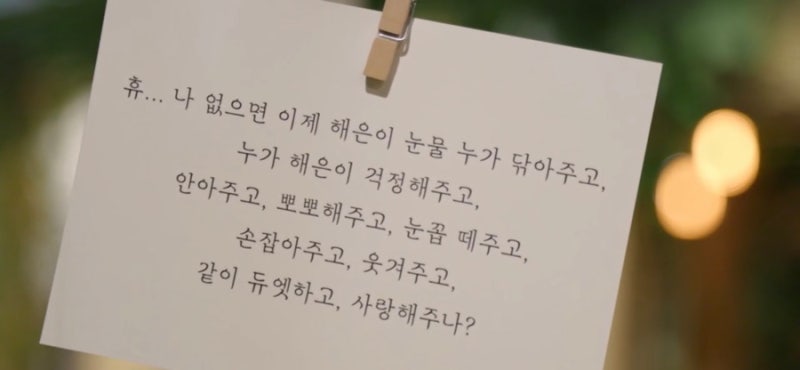 휴... 나 없으면 이제 해은이 눈물 누가 닦아주고,
누가 해은이 걱정해주고,
안아주고, 뽀뽀해주고, 눈꼽 떼주고,
손잡아주고, 웃겨주고,
같이 듀엣하고, 사랑해주나?